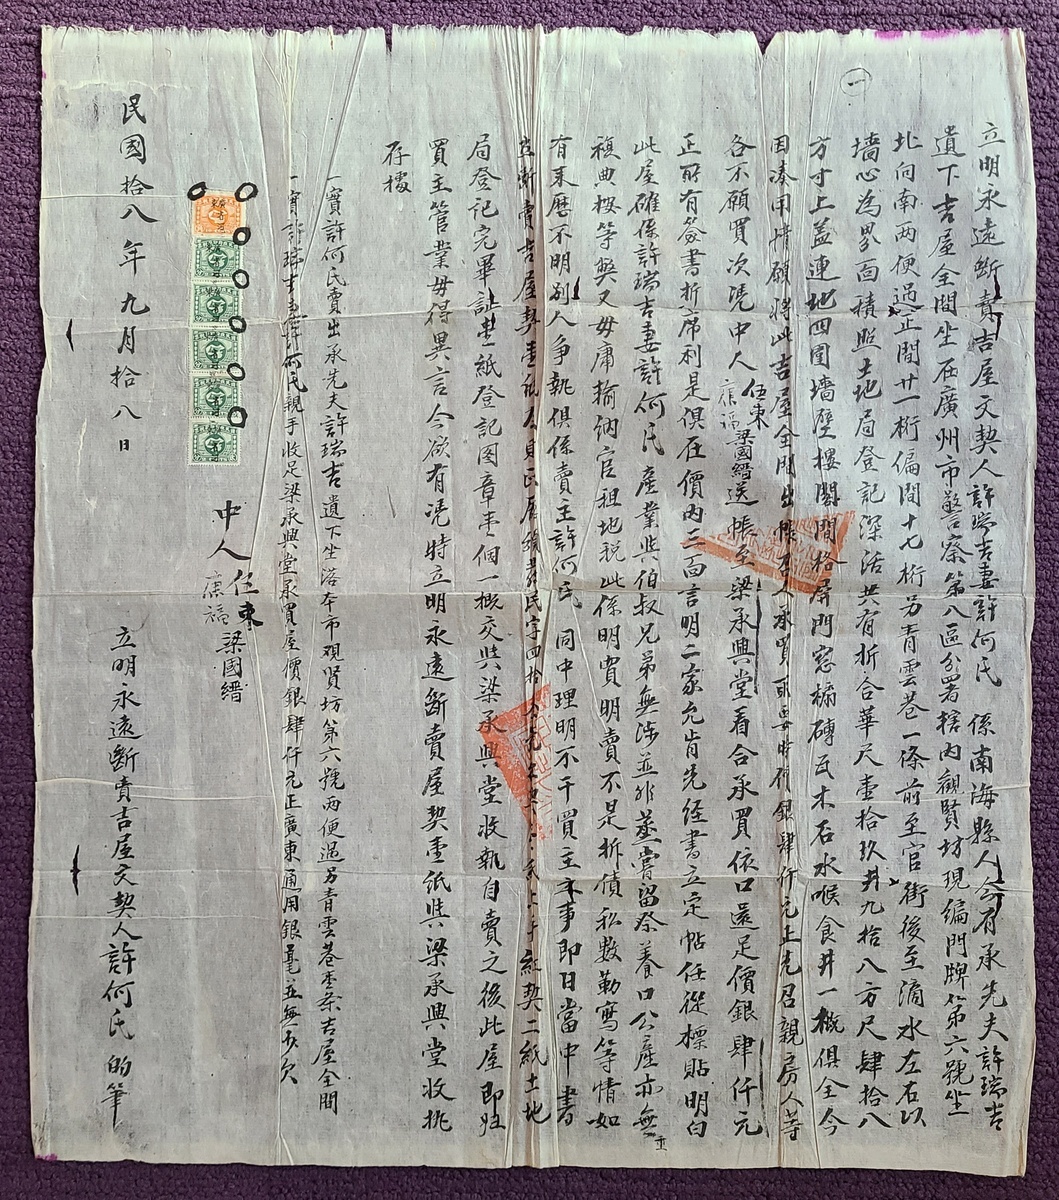 一
立明永遠斷賣吉屋文契人許瑞吉妻許何氏 係南海縣人今有承先夫許瑞吉
遺下吉屋全間坐在廣州市警察第八區分署轄內觀賢坊現編門牌第六號坐
北向南兩便過正間廿一桁偏間十七桁另青雲巷一條前至官街後至滴水左右以
墻心為界面積照土地局登記深活共有折合華尺壹拾玖井九拾八方尺肆拾八
方寸上蓋連地四圍墻壁樓閣間格屏門窓櫺磚瓦木石水喉食井一概俱全今
因凑用情願將此吉屋全間出帳召人承買取要時價銀肆仟元上先召親房人等
各不願買次凭中人伍東焦福梁國縉送帳至梁承興堂看合承買依口還足價銀肆仟元
正所有簽書折席利是俱在價內三面言明二家允肯先經書立定帖任從標貼明白
此屋確係許瑞吉妻許何氏 產業與伯叔兄弟無涉並非蒸嘗留祭養口公產亦無重
複典按等獘又毋庸輸納官租地稅此係明買明賣不是折債私數勒寫等情如
有來歷不明別人爭執俱係賣主許何氏 同中理明不干買主之事即日當中書
立斷賣吉屋契壹紙 上手紅契二紙土地
局登記完畢証壹紙登記圖章壹個一概交與梁承興堂收執自賣之後此屋即歸
買主管業毋得異言今欲有凭特立明永遠斷賣屋契壹紙與梁承興堂收執
存據
一實許何氏賣出承先夫許瑞吉遺下坐落本市觀賢坊第六號兩便過另青雲巷壹條吉屋全間
一實許瑞吉妻許何氏親手收足梁承興堂承買屋價銀肆仟元正廣東通用銀毫並無少欠
中人伍東焦福梁國縉
立明永遠斷賣吉屋文契人許何氏的筆
民國拾八年九月拾八日